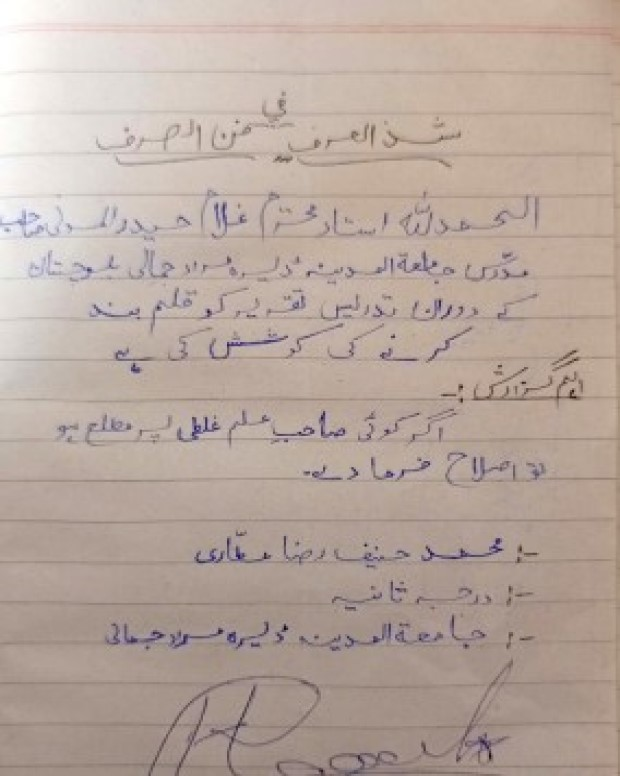 شذ العرف في فن الصرف
الحمدللہ استاد محترم غلام حیدر المدنی صاحب
مدرّس جامعۃ المدینہ ڈیرہ مراد جمالی بلوچستان
کے دوران تدریس تقریر کو قلم بند
کرنے کی کوشش کی ہے
اہم گزارش :-
اگر کوئی صاحبِ علم غلطی پر مطلع ہو
تو اصلاح فرما دے۔
-: محمد حنیف رضا عطّاری
-: درجہ ثانیہ
-: جامعۃ المدینہ ڈیرہ مراد جمالی